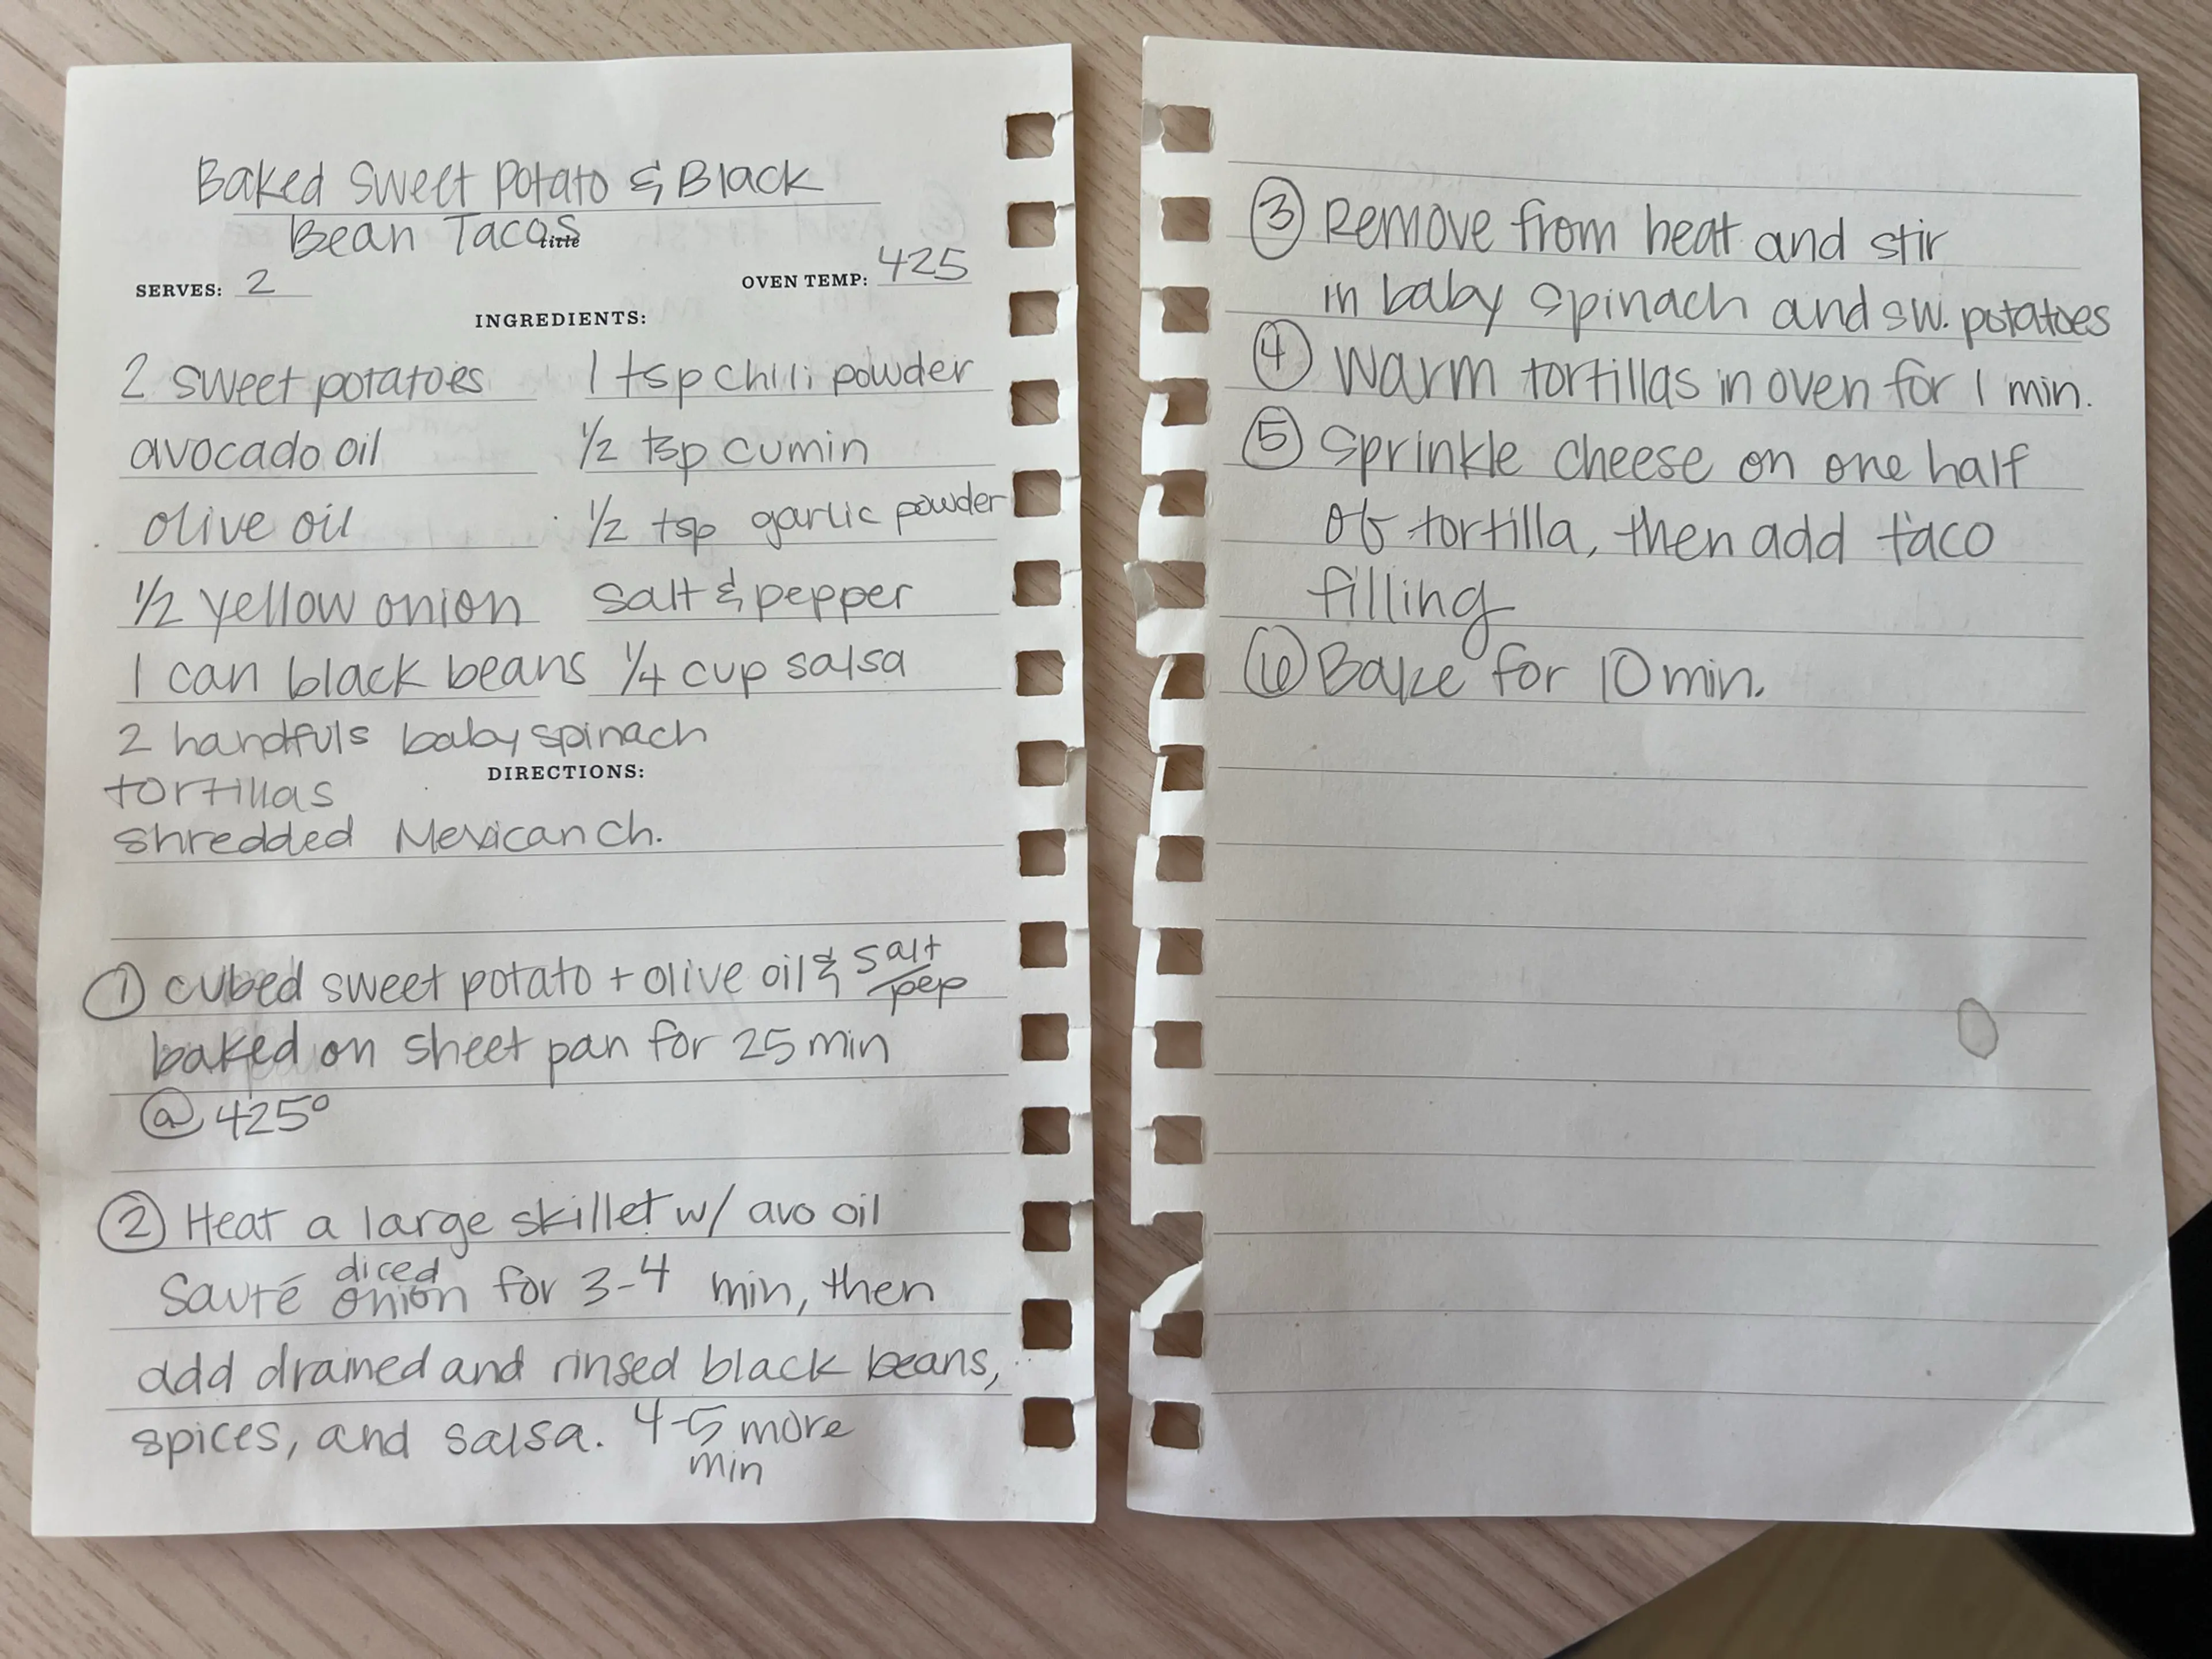 Baked Sweet Potato & Black
Bean Tacos
title
SERVES: 2
OVEN TEMP: 425
INGREDIENTS:
2 sweet potatoes
avocado oil
olive oil
1/2 yellow onion
1 can black beans
2 handfuls baby spinach
tortillas
shredded Mexican ch.
1 tsp chili powder
1/2 tsp cumin
1/2 tsp garlic powder
salt & pepper
1/4 cup salsa
DIRECTIONS:
① cubed sweet potato + olive oil & salt/pep
baked on sheet pan for 25 min
@ 425°
② Heat a large skillet w/ avo oil
Sauté diced onion for 3-4 min, then
add drained and rinsed black beans,
spices, and salsa. 4-5 more
min
③ Remove from heat and stir
in baby spinach and sw. potatoes
④ Warm tortillas in oven for 1 min.
⑤ Sprinkle cheese on one half
of tortilla, then add taco
filling
⑥ Bake for 10 min.